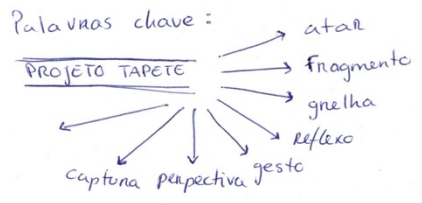 Palavras chave:
PROJETO TAPETE
atar
fragmento
grelha
reflexo
gesto
perspectiva
captura